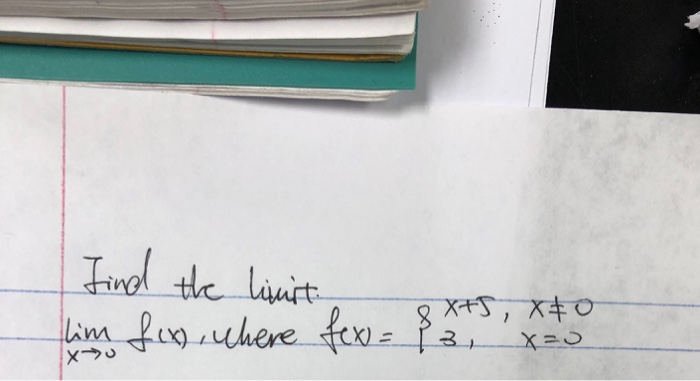 Find the limit.
lim f(x), where f(x) = { x+5, x≠0
x→0 3, x=0